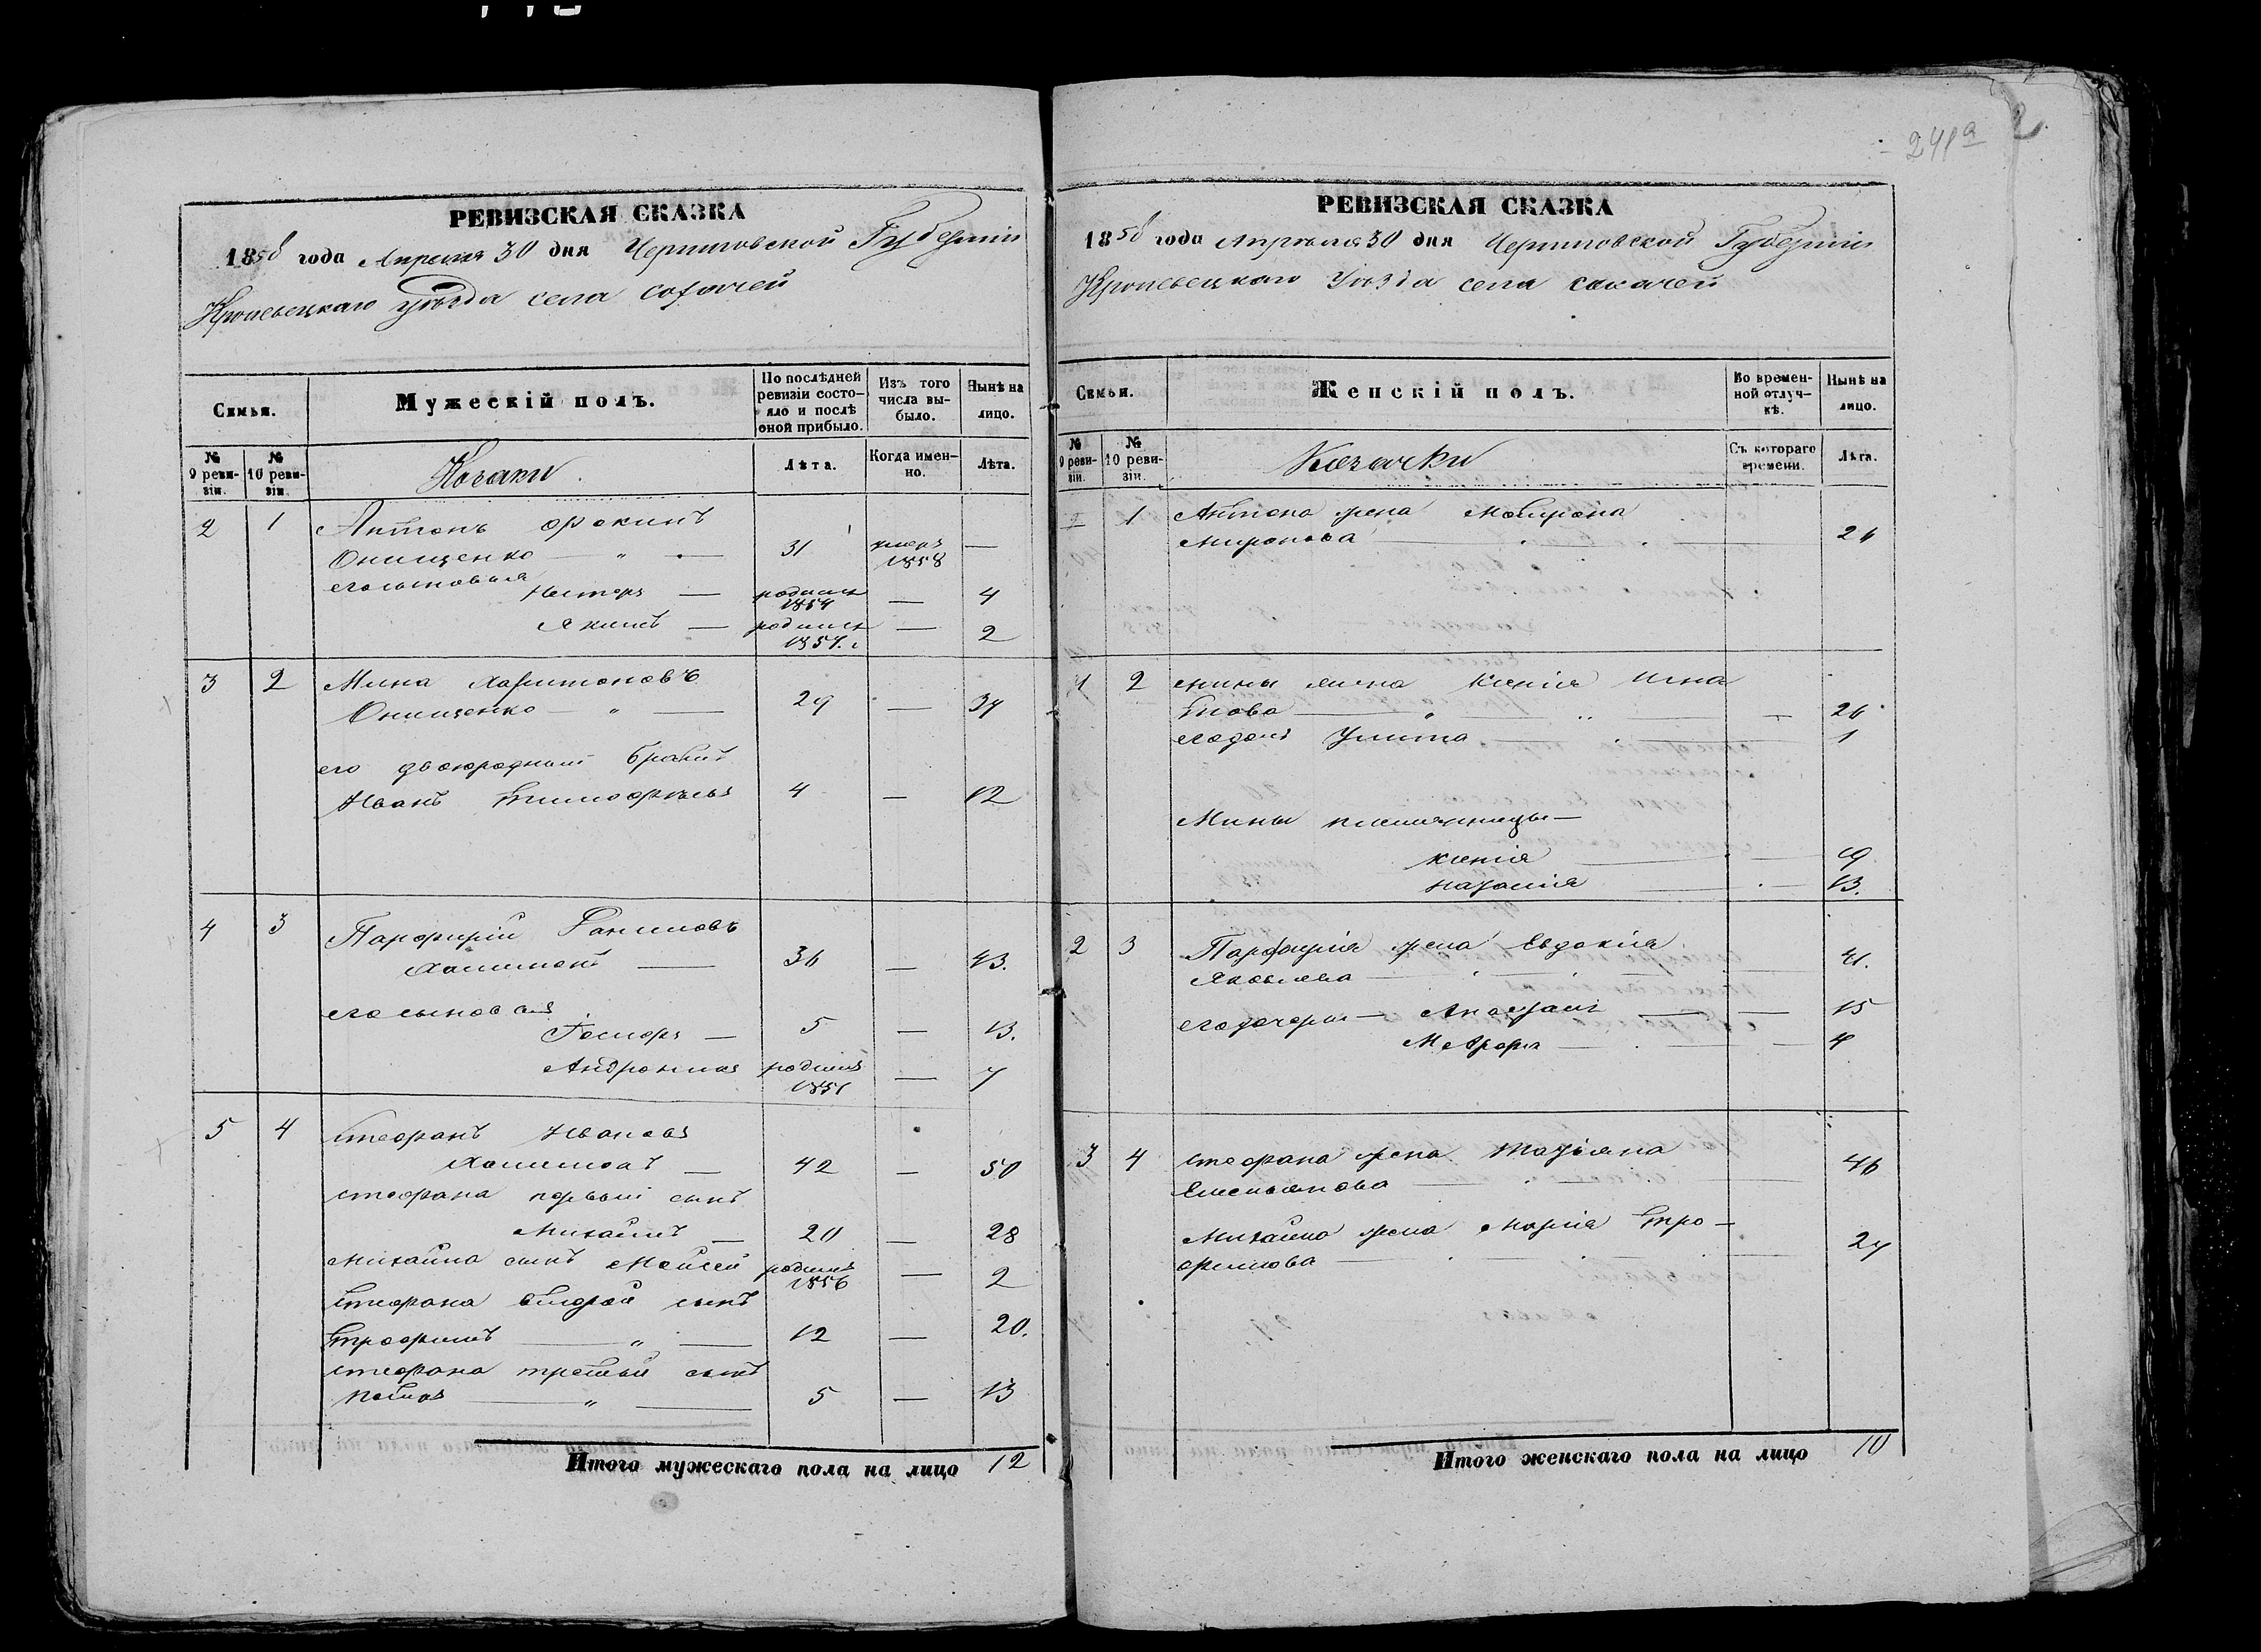 241а 2
РЕВИЗСКАЯ СКАЗКА
1858 года Апреля 30 дня Черниговской Губерніи
Кролевецкаго уѣзда села
Семьи.
Мужескій полъ.
По послѣдней ревизіи состояло и послѣ оной прибыло.
Изъ того числа выбыло.
Нынѣ на лицо.
№ 9 ревизіи.
№ 10 ревизіи.
Козаки
Лѣта.
Когда именно.
Лѣта.
2 1 Антонъ
Онищенко — " — 31 умеръ 1858 —
его сыновья
Несторъ — родился 1854 — 4
Якимъ — родился 1857 — 2
3 2 Мина Харитоновъ
Онищенко — " — 29 — 37
его двоюродный братъ
Иванъ Тимофѣевъ 4 — 12
4 3 Парфирій
36 — 43.
его сыновья
5 — 13.
родился 1851 — 7
5 4 Стефанъ Ивановъ
42 — 50
Стефана первый сынъ
Михайлъ — 20 — 28
Михайла сынъ Мойсей родился 1856 — 2
Стефана второй сынъ
Трофимъ — " — 12 — 20.
Стефана третій сынъ
— " — 5 — 13
Итого мужескаго пола на лицо 12
РЕВИЗСКАЯ СКАЗКА
1858 года Апрѣля 30 дня Черниговской Губерніи
Кролевецкаго Уѣзда села
Семьи.
Женскій полъ.
Во временной отлучкѣ.
Нынѣ на лицо.
№ 9 ревизіи.
№ 10 ревизіи.
Козачки
Съ котораго времени.
Лѣта.
2 1 Антона жена Мотрона
Миронова — 26
2 Мины жена Ксенія Игнатова — " — 26
его дочь Улита — 1
Мины племянницы —
Ксенія — 19
Наталія — 13.
2 3 Парфирія жена Евдокія
Яковлева — 41.
его дочери — 15
— 4
3 4 Стефана жена Татіяна
Емельянова — 46
Михайла жена Марія Трофимова — 27
Итого женскаго пола на лицо 10